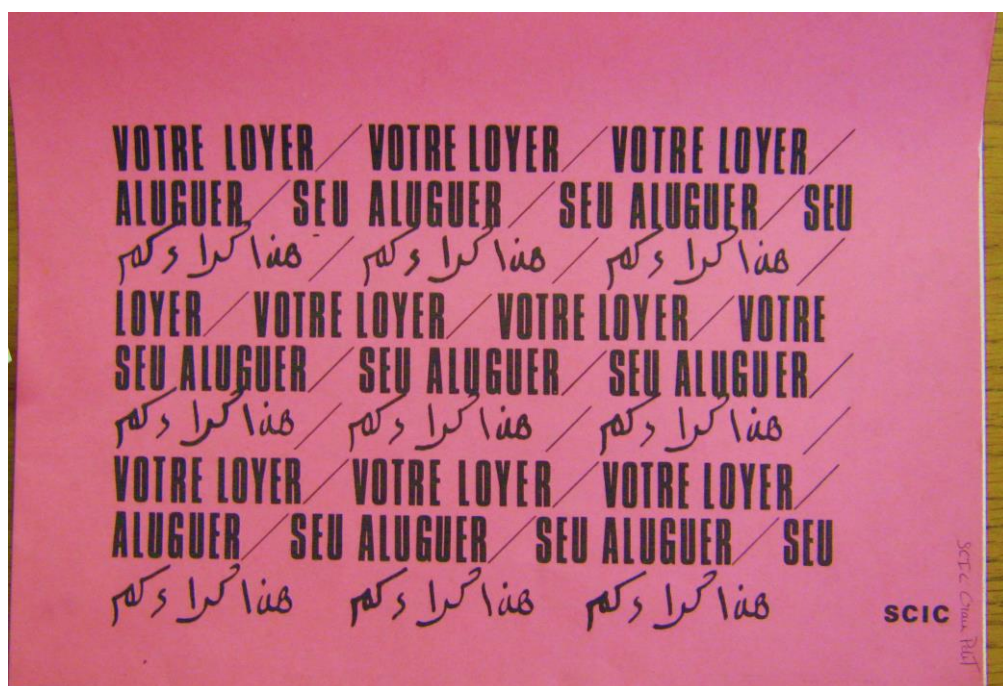 VOTRE LOYER / VOTRE LOYER / VOTRE LOYER /
ALUGUER / SEU ALUGUER / SEU ALUGUER / SEU
هذا كراءكم / هذا كراءكم / هذا كراءكم /
LOYER / VOTRE LOYER / VOTRE LOYER / VOTRE
SEU ALUGUER / SEU ALUGUER / SEU ALUGUER /
هذا كراءكم / هذا كراءكم / هذا كراءكم /
VOTRE LOYER / VOTRE LOYER / VOTRE LOYER /
ALUGUER / SEU ALUGUER / SEU ALUGUER / SEU
هذا كراءكم هذا كراءكم هذا كراءكم
SCIC
SCIC Croix Petit